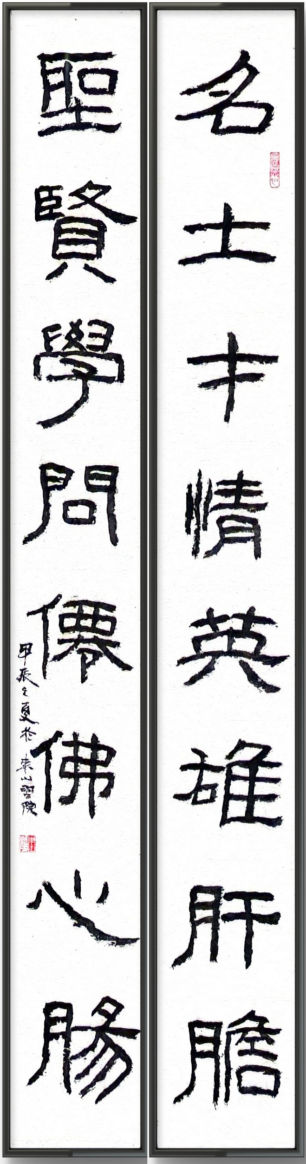 名士才情英雄肝膽
聖賢學問僊佛心腸
甲辰之夏於